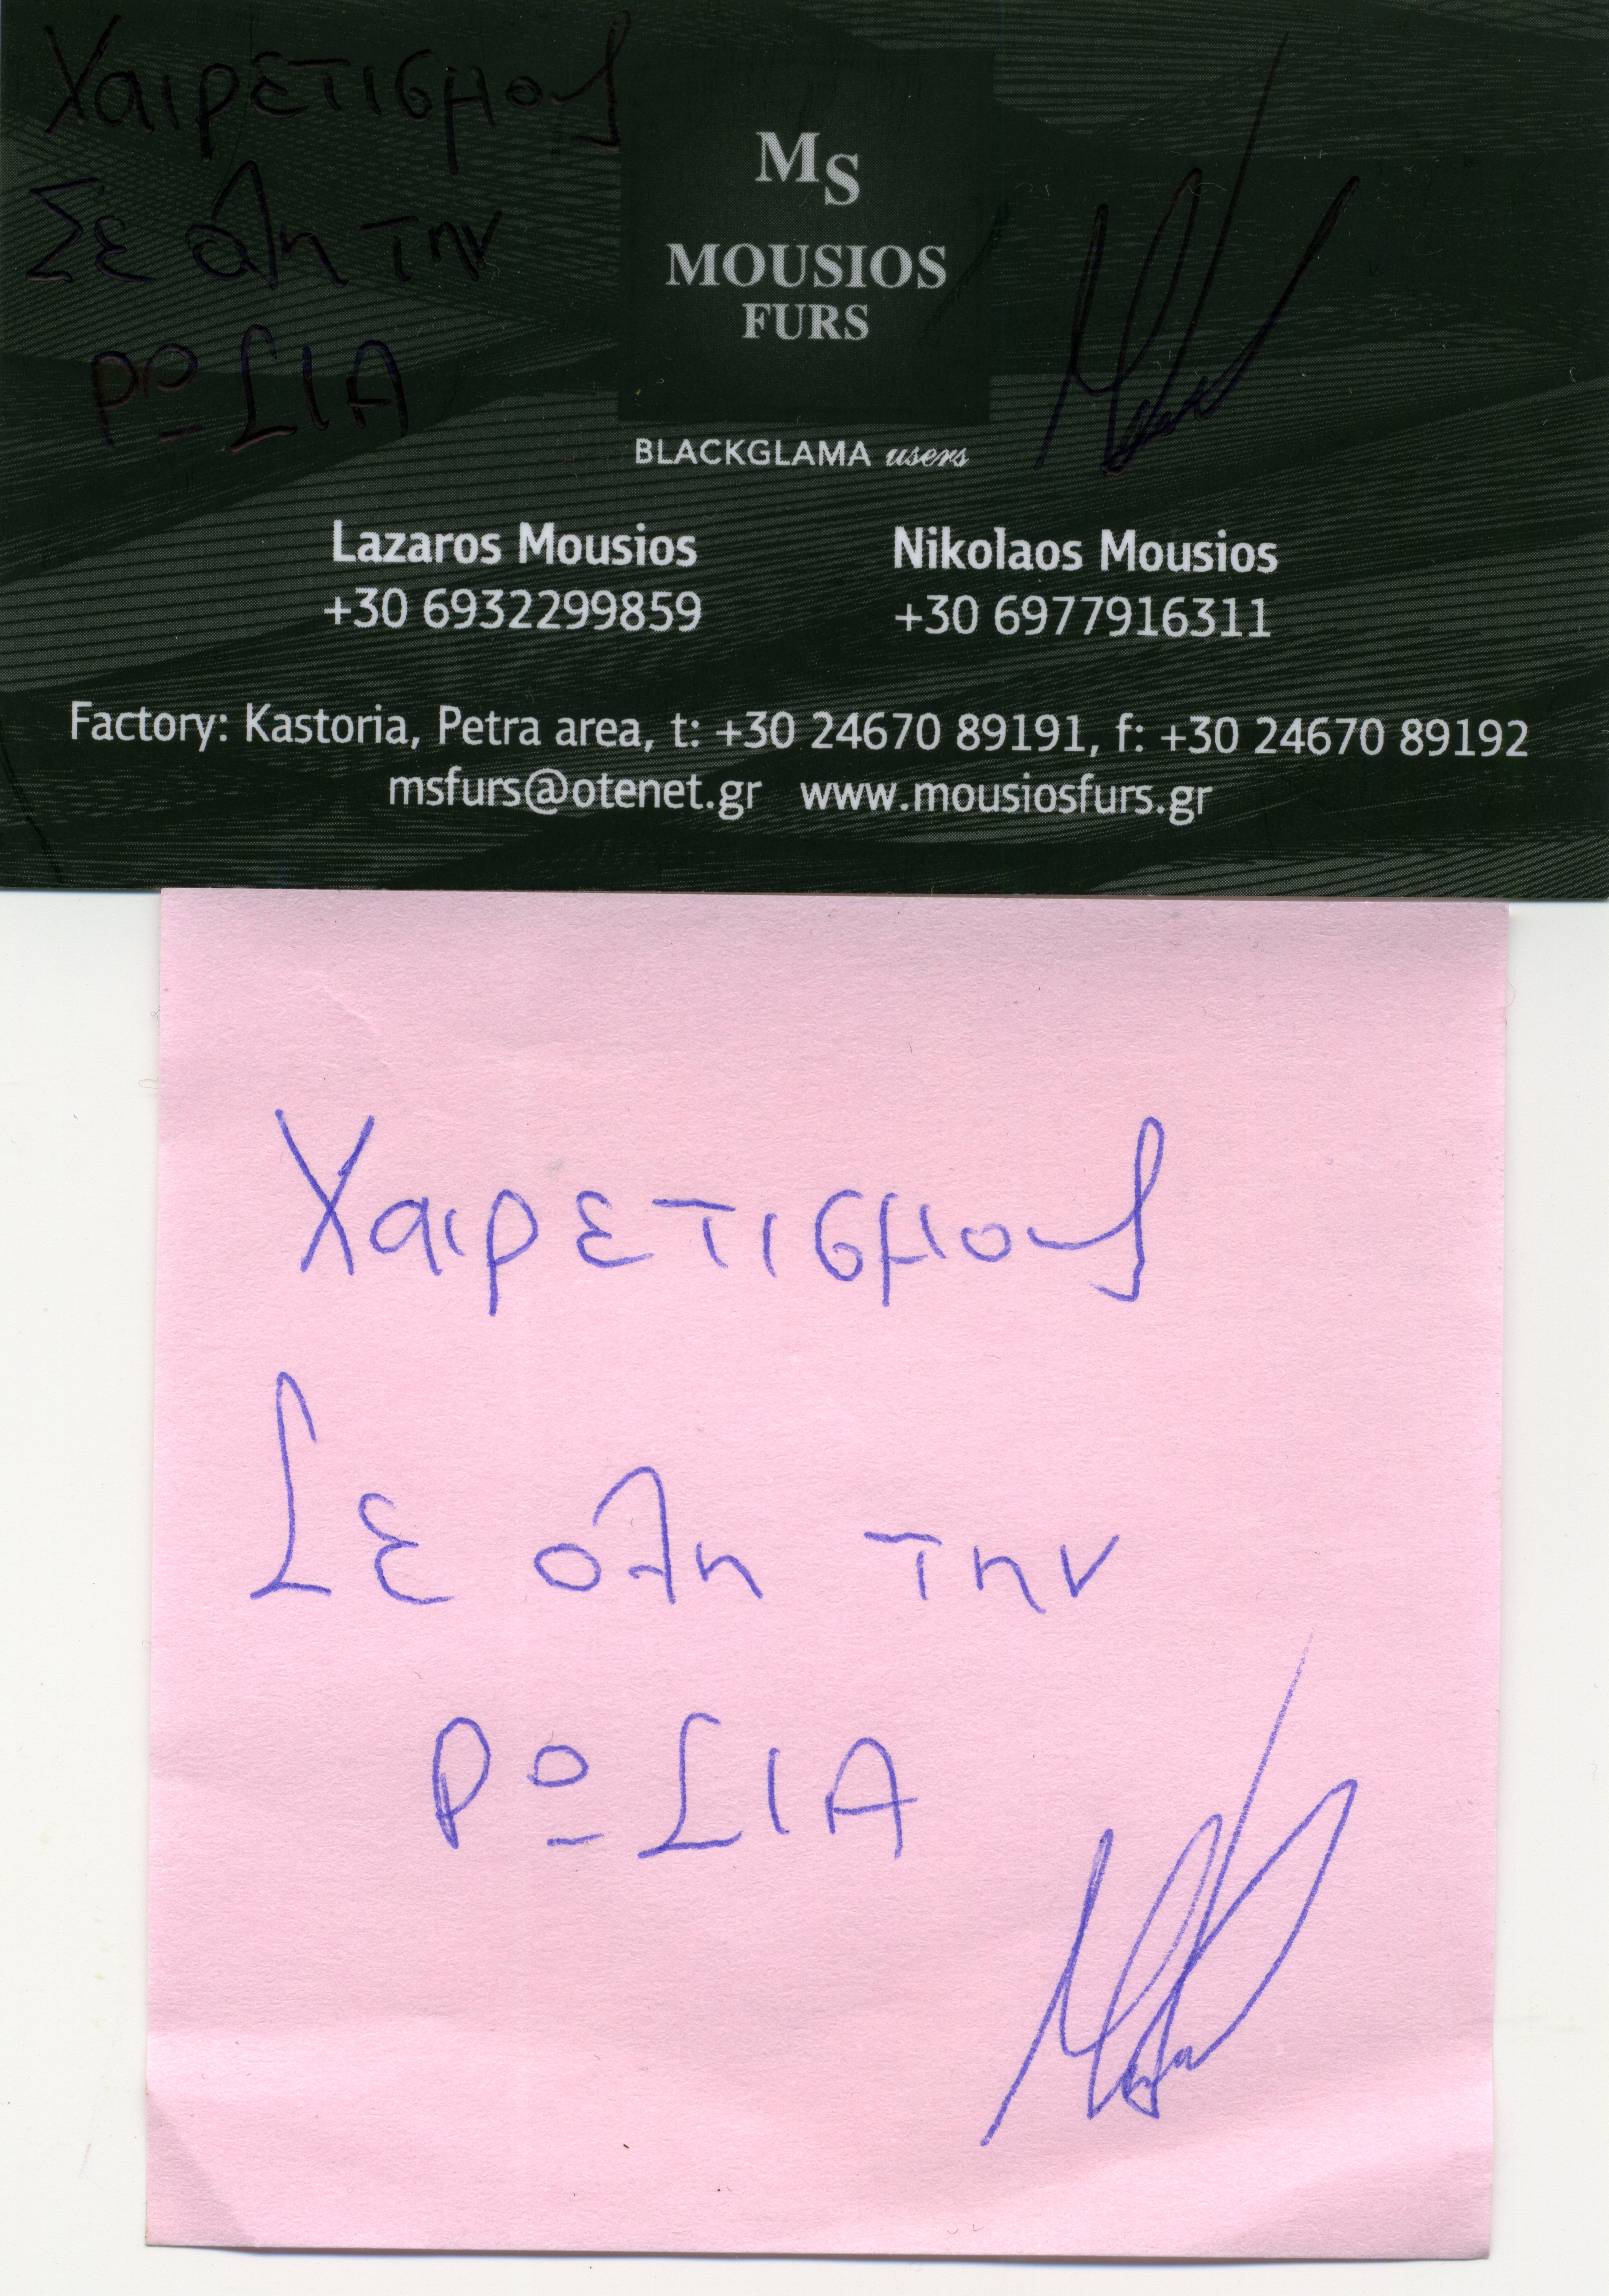 Χαιρετισμους
Σε όλη την
ΡΩΣΙΑ
MS
MOUSIOS
FURS
BLACKGLAMA users
Lazaros Mousios
+30 6932299859
Nikolaos Mousios
+30 6977916311
Factory: Kastoria, Petra area, t: +30 24670 89191, f: +30 24670 89192
msfurs@otenet.gr www.mousiosfurs.gr
Χαιρετισμους
Σε όλη την
ΡΩΣΙΑ